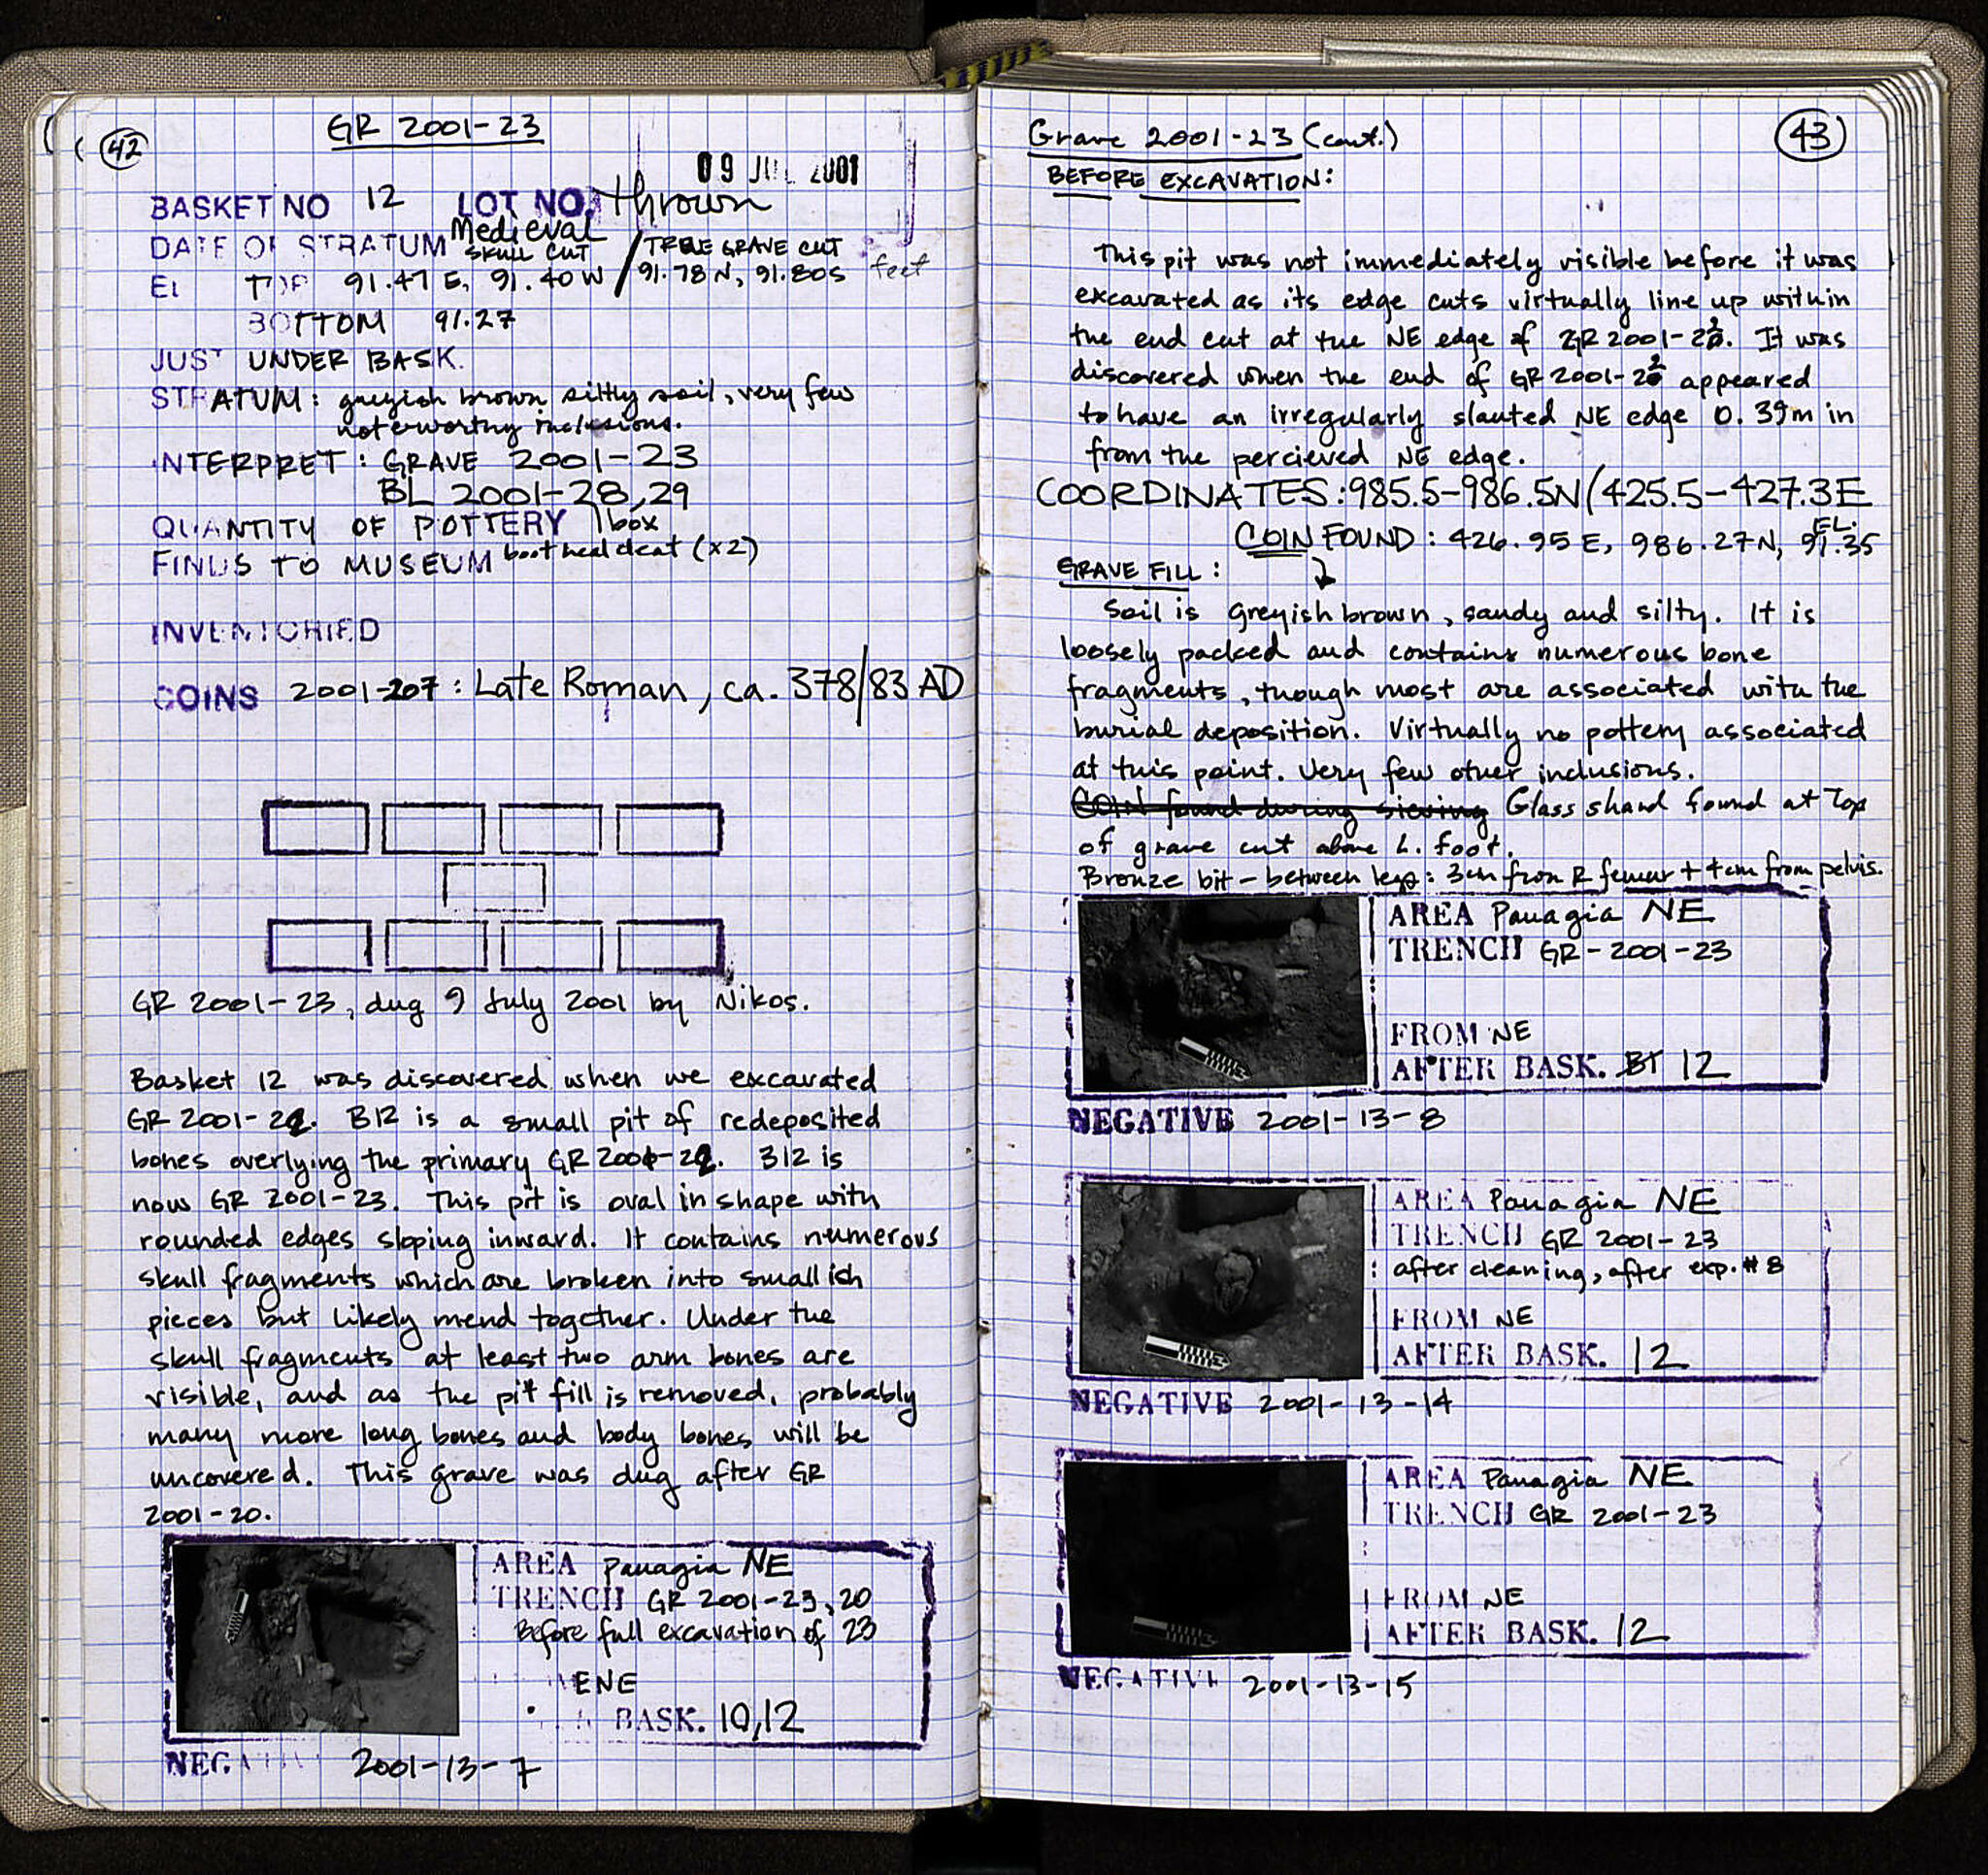 42
GR 2001-23
09 JUL 2001
BASKET NO 12 LOT NO. thrown
DATE OF STRATUM Medieval
SKULL CUT / TRUE GRAVE CUT
EL TOP 91.47 E, 91.40 W / 91.78 N, 91.80 S feet
BOTTOM 91.27
JUST UNDER BASK.
STRATUM: greyish brown siltly soil, very few
noteworthy inclusions.
INTERPRET: GRAVE 2001-23
BL 2001-28, 29
QUANTITY OF POTTERY 1 box
FINDS TO MUSEUM boot heal cleat (x2)
INVENTORIED
COINS 2001-207: Late Roman, ca. 378/83 AD
GR 2001-23, dug 9 July 2001 by Nikos.
Basket 12 was discovered when we excavated
GR 2001-22. B12 is a small pit of redeposited
bones overlying the primary GR 2001-22. B12 is
now GR 2001-23. This pit is oval in shape with
rounded edges sloping inward. It contains numerous
skull fragments which are broken into smallish
pieces but likely mend together. Under the
skull fragments at least two arm bones are
visible, and as the pit fill is removed, probably
many more long bones and body bones will be
uncovered. This grave was dug after GR
2001-20.
AREA Panagia NE
TRENCH GR 2001-23, 20
Before full excavation of 23
ENE
BASK. 10,12
NEGATIVE 2001-13-7
Grave 2001-23 (cont.)
43
BEFORE EXCAVATION:
This pit was not immediately visible before it was
excavated as its edge cuts virtually line up within
the end cut at the NE edge of GR 2001-22. It was
discovered when the end of GR 2001-22 appeared
to have an irregularly slanted NE edge 0.39m in
from the percieved NE edge.
COORDINATES: 985.5-986.5N/425.5-427.3E
COIN FOUND: 426.95 E, 986.27 N, EL. 91.35
GRAVE FILL:
Soil is greyish brown, sandy and silty. It is
loosely packed and contains numerous bone
fragments, though most are associated with the
burial deposition. Virtually no pottery associated
at this point. Very few other inclusions.
COIN found during sieving Glass shard found at top
of grave cut above L. foot.
Bronze bit - between legs: 3cm from R femur + 4cm from pelvis.
AREA Panagia NE
TRENCH GR-2001-23
FROM NE
AFTER BASK. BT 12
NEGATIVE 2001-13-8
AREA Panagia NE
TRENCH GR 2001-23
: after cleaning, after exp. #8
FROM NE
AFTER BASK. 12
NEGATIVE 2001-13-14
AREA Panagia NE
TRENCH GR 2001-23
FROM NE
AFTER BASK. 12
NEGATIVE 2001-13-15